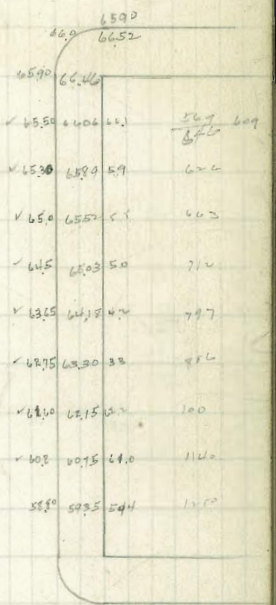 6590
66.0 6652
65.90 66.46
✓ 65.50 6606 66.1 569 609
646
✓ 65.30 6584 5.9 622
✓ 65.0 6552 663
✓ 64.5 65.03 5.0 712
✓ 63.65 64.15 4.2 797
✓ 62.75 63.30 33 886
✓ 61.60 62.15 100
✓ 60.2 60.75 61.0 1140
58.80 59.35 59.4 1250